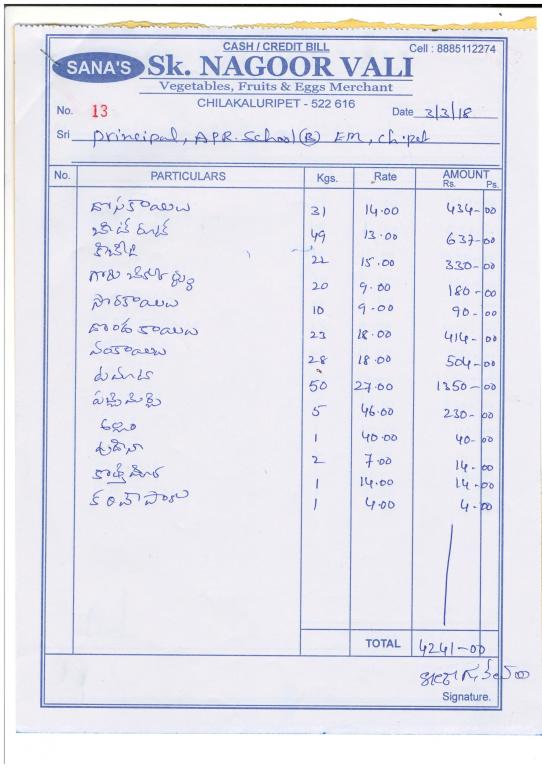 CASH / CREDIT BILL
Cell : 8885112274
SANA'S Sk. NAGOOR VALI
Vegetables, Fruits & Eggs Merchant
CHILAKALURIPET - 522 616
No. 13 Date 3/3/18
Sri Principal, APR. School (B) EM, Ch.pet
No. PARTICULARS Kgs. Rate AMOUNT
Rs. Ps.
దోసకాయలు 31 14.00 434-00
బీట్ రూట్ 49 13.00 637-00
క్యాబేజి 22 15.00 330-00
20 9.00 180-00
సొరకాయలు 10 9-00 90-00
దొండకాయలు 23 18.00 414-00
వంకాయలు 28 18.00 504-00
టమాటా 50 27.00 1350-00
పచ్చిమిర్చి 5 46.00 230-00
అల్లం 1 40.00 40-00
పుదీనా 2 7.00 14-00
కొత్తిమీర 1 14.00 14-00
కరివేపాకు 1 4.00 4-00
TOTAL 4241-00
Signature.